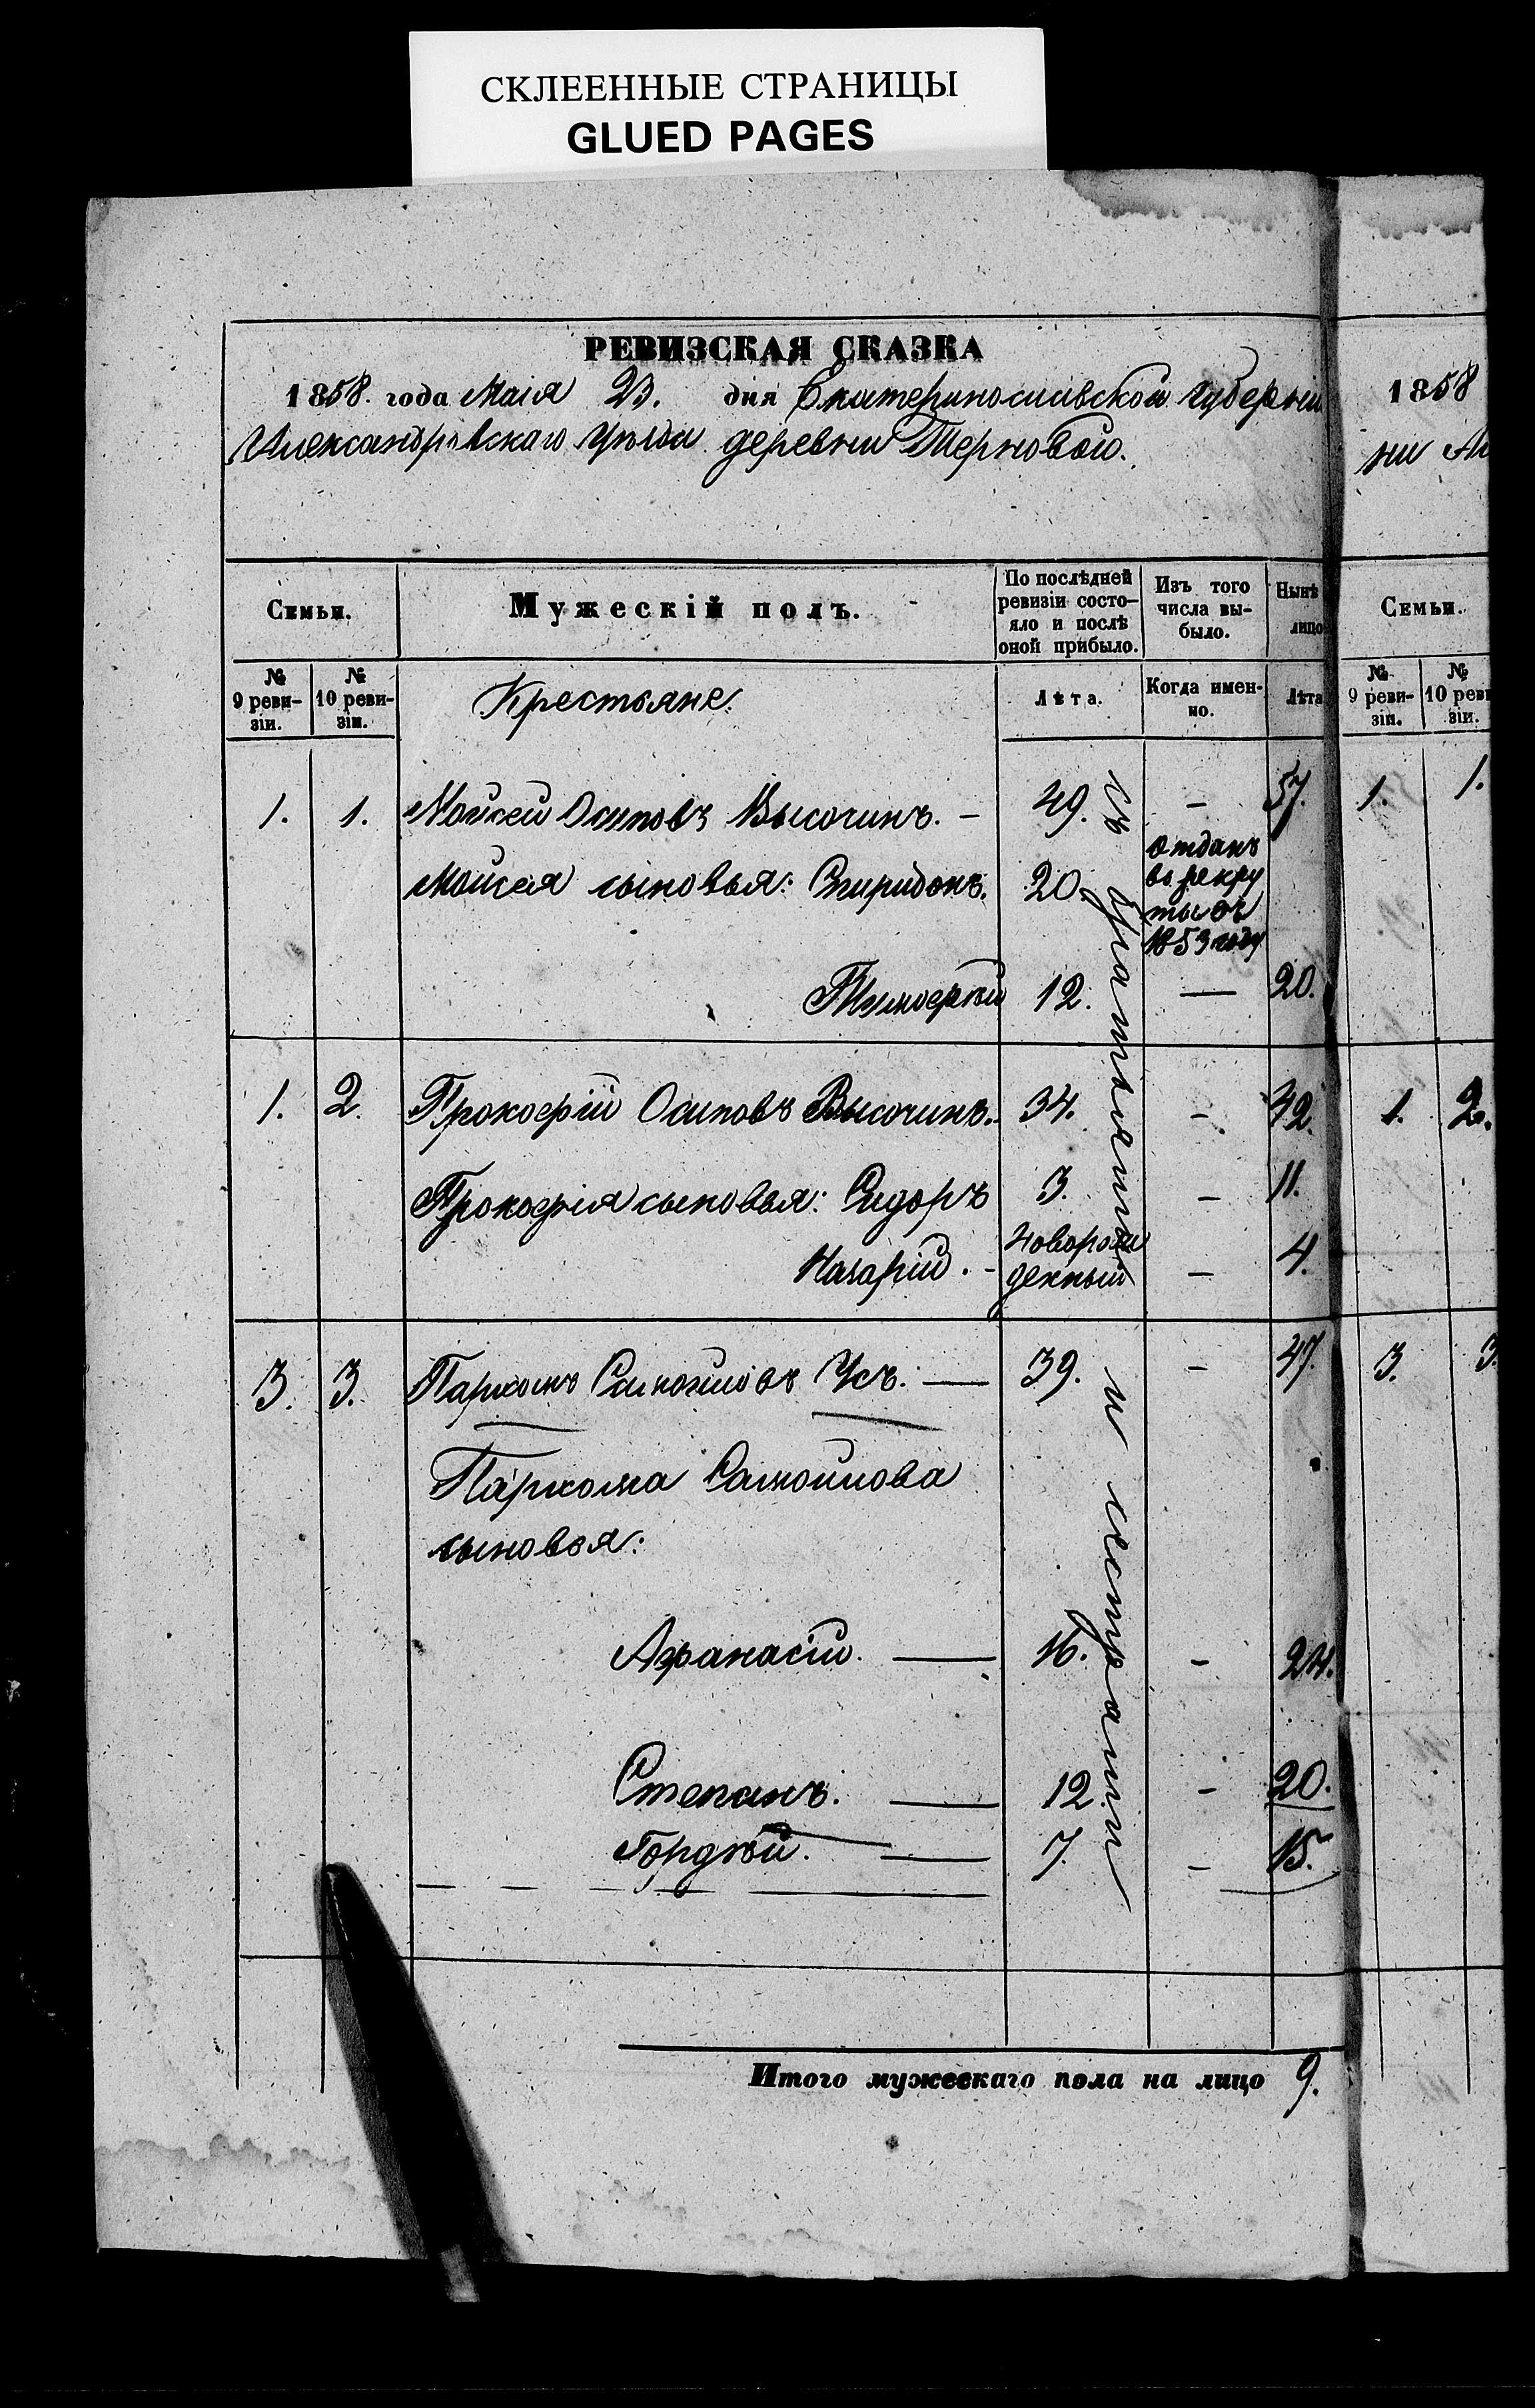 СКЛЕЕННЫЕ СТРАНИЦЫ
GLUED PAGES
РЕВИЗСКАЯ СКАЗКА
1858. года Маія 23. дня Екатеринославской губерніи
Александровскаго уѣзда деревни Терновой.
Семьи.
Мужескій полъ.
По послѣдней ревизіи состо-
яло и послѣ оной прибыло.
Изъ того числа вы-
было.
Нынѣ
лицо
№ 9 реви-
зіи.
№ 10 реви-
зіи.
Крестьяне.
Лѣта.
Когда имен-
но.
Лѣта
1. 1. Мойсей Осиповъ Высочинъ. - 49. - 57.
Мойсея сыновья: Спиридонъ. 20.
отданъ
въ рекру
ты въ
1853 году
Тимоѳей 12. — 20.
1. 2. Прокофій Осиповъ Высочинъ. 34. - 42.
Прокофія сыновья: Сидоръ 3. - 11.
Назарій. - новорож
денный - 4.
3. 3. Пархомъ Самойловъ Усъ. — 39. - 47.
Пархома Самойлова
сыновья:
Афанасій. — 16. - 24.
Степанъ. — 12. - 20.
Гордѣй. — 7. - 15.
съ братьями
и сестрами
Итого мужескаго пола на лицо 9.
1858
ни Ал
Семьи.
№ 9 реви-
зіи.
№ 10 реви
зіи.
1. 1.
1. 2.
3. 3.